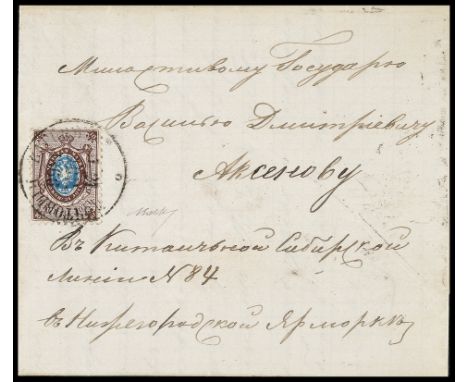 Милостивому Государю
Василью Дмитріевичу
Аксенову
Въ Китайчьной Сибирской
Линіи N 84
въ Нижегородской Ярморкѣ